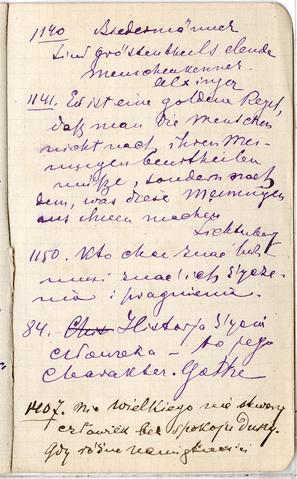 1140 Biedermänner
sind grösstentheils elende
Menschenkenner.
Alxinger
1141. Es ist eine goldene Regel,
daß man die Menschen
nicht nach ihren Mei-
nungen beurtheilen
müße, sondern nach
dem, was diese Meinungen
aus ihnen machen
Lichtenberg
1150. Kto chce znać ludzi
musi znać ich życze-
nia i pragnienia.
84. Historja życia
człowieka – to jego
charakter. Goethe
1407. Nic wielkiego nie stworzy
człowiek bez spokoju duszy.
Gdy różne namiętności